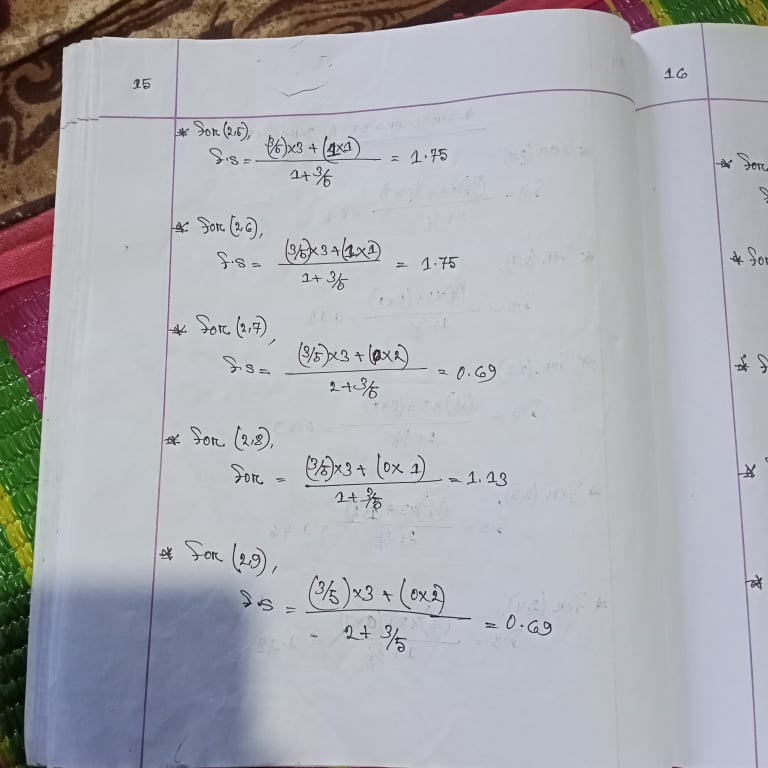 15
* For (2,5),
F.S = (3/5)×3 + (1×1) / 1 + 3/5 = 1.75
* For (2,6),
F.S = (3/5)×3 + (1×1) / 1 + 3/5 = 1.75
* For (2,7),
F.S = (3/5)×3 + (0×2) / 2 + 3/5 = 0.69
* For (2,8),
For = (3/5)×3 + (0×1) / 1 + 3/5 = 1.13
* For (2,9),
F.S = (3/5)×3 + (0×2) / 2 + 3/5 = 0.69
16
* For
* For